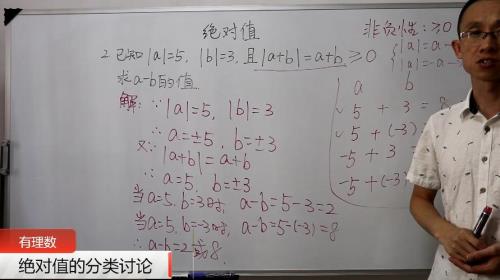 绝对值
2. 已知|a|=5, |b|=3, 且|a+b|=a+b≥0
求a-b的值
解: ∵ |a|=5, |b|=3
∴ a=±5, b=±3
又∵ |a+b|=a+b
∴ a=5, b=±3
当a=5, b=3时, a-b=5-3=2
当a=5, b=-3时, a-b=5-(-3)=8
∴ a-b=2或8.
非负性: ≥0
|a|=a
|a|=-a
a b
5 + 3 = 8
5 + (-3)
-5 + 3
-5 + (-3)
有理数
绝对值的分类讨论